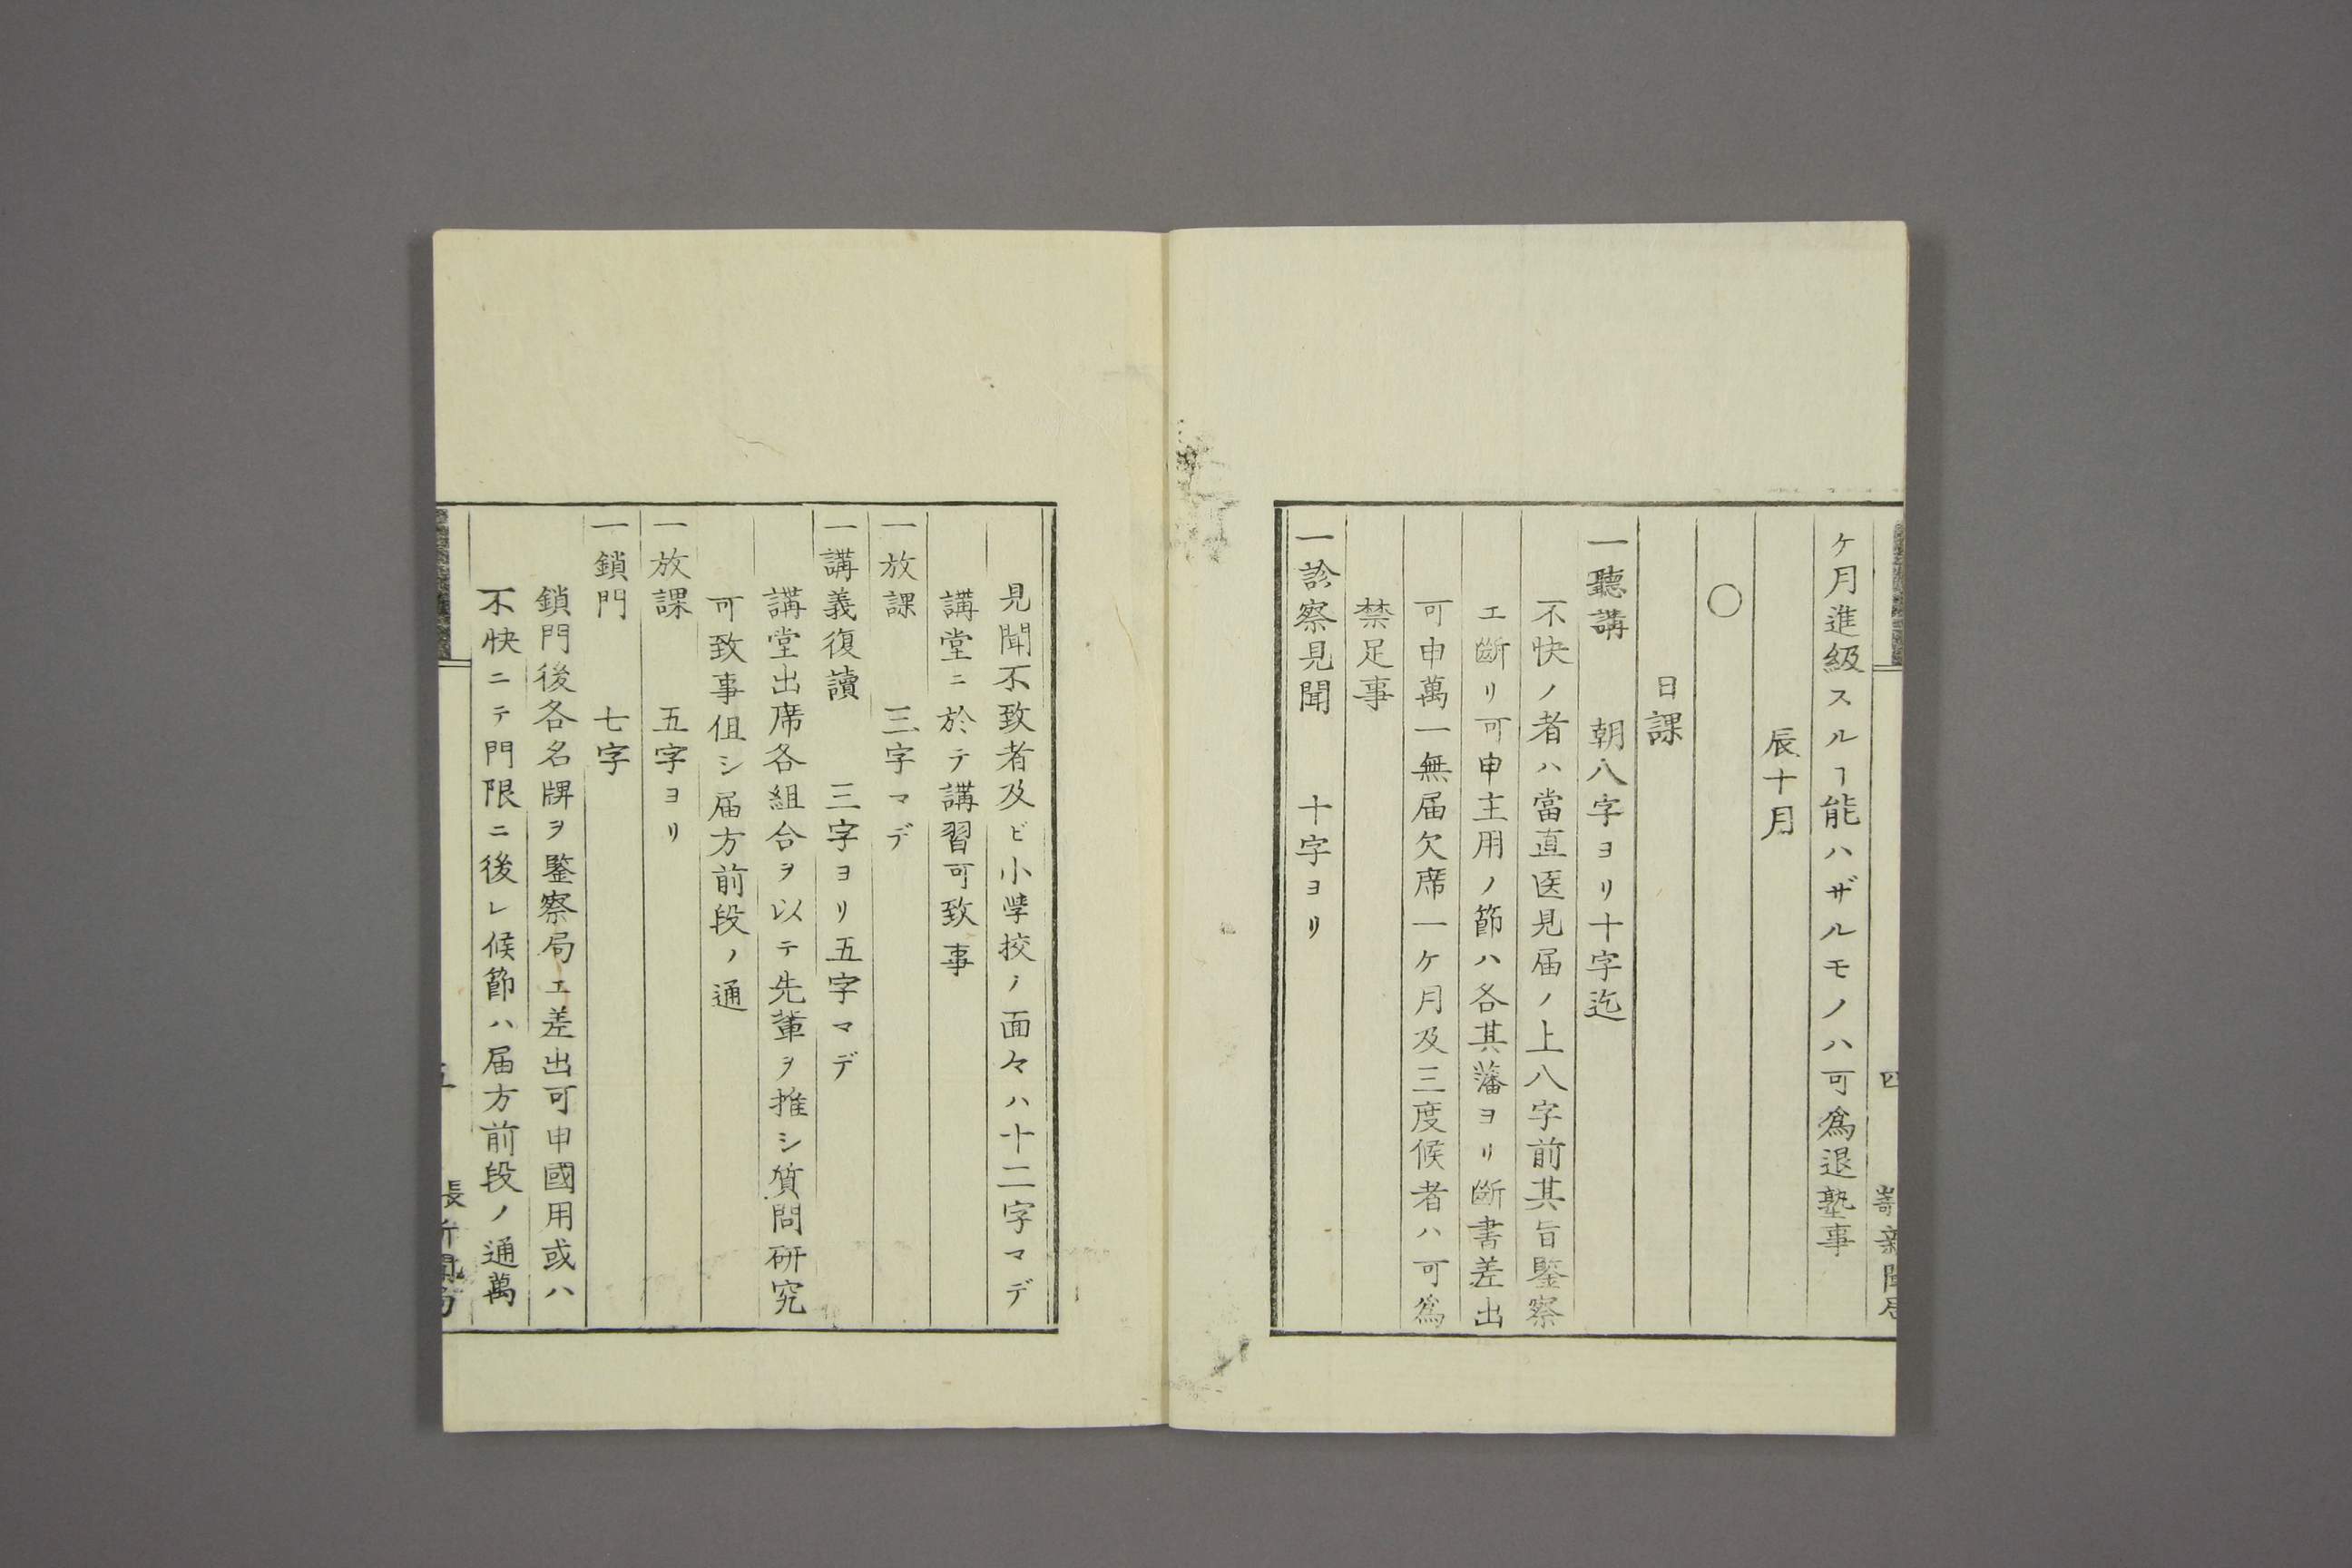 ケ月進級スルヿ能ハザルモノハ可爲退塾事
辰十月
〇
日課
一聽講　朝八字ヨリ十字迄
不快ノ者ハ當直医見届ノ上八字前其旨鑒察
エ斷リ可申主用ノ節ハ各其藩ヨリ斷書差出
可申萬一無届欠席一ケ月及三度候者ハ可爲
禁足事
一診察見聞　十字ヨリ
見聞不致者及ビ小学挍ノ面々ハ十二字マデ
講堂ニ於テ講習可致事
一放課　三字マデ
一講義復讀　三字ヨリ五字マデ
講堂出席各組合ヲ以テ先輩ヲ推シ質問研究
可致事伹シ届方前段ノ通
一放課　五字ヨリ
一鎖門　七字
鎖門後各名牌ヲ鑒察局エ差出可申國用或ハ
不快ニテ門限ニ後レ候節ハ届方前段ノ通萬